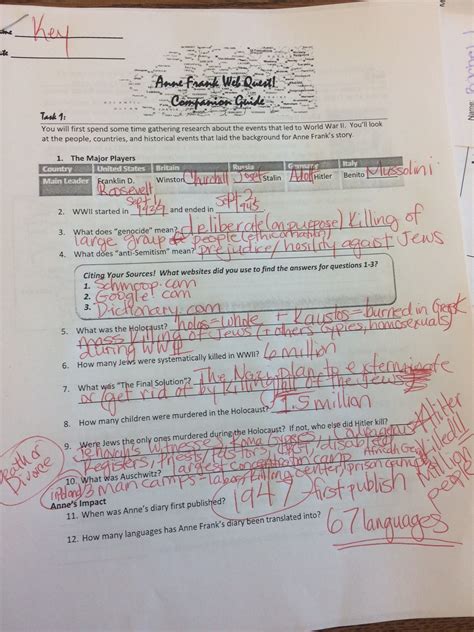 Key
Anne Frank Web Quest!
Companion Guide
Task 1:
You will first spend some time gathering research about the events that led to World War II. You'll look
at the people, countries, and historical events that laid the background for Anne Frank's story.
1. The Major Players
Country United States Britain Russia Germany Italy
Main Leader Franklin D. Roosevelt Winston Churchill Josef Stalin Adolf Hitler Benito Mussolini
2. WWII started in Sept 1 1939 and ended in Sept. 2 1945
3. What does "genocide" mean? deliberate (on purpose) killing of
large group of people (ethnic/nation)
4. What does "anti-Semitism" mean? prejudice/hostility against Jews
Citing Your Sources! What websites did you use to find the answers for questions 1-3?
1. Schmoop.com
2. Google.com
3. Dictionary.com
5. What was the Holocaust? holos = whole + Kaustos = burned in Greek
mass killing of Jews (+ others Gypies, homosexuals)
during WWII
6. How many Jews were systematically killed in WWII? 6 million
7. What was "The Final Solution"? The Nazi plan to exterminate
or (get rid of by killing) all of the Jews
8. How many children were murdered in the Holocaust? 1.5 million
9. Were Jews the only ones murdered during the Holocaust? If not, who else did Hitler kill?
Jehovah's witnesses, Roma Gypsies,
Resisters, Priests, pastors, disabled
Hitler killed 11 million people
10. What was Auschwitz? largest concentration camp
3 main camps = labor, killing center, prison camp
death or Divorce
Anne's Impact
11. When was Anne's diary first published? 1947 first publish
12. How many languages has Anne Frank's diary been translated into? 67 languages